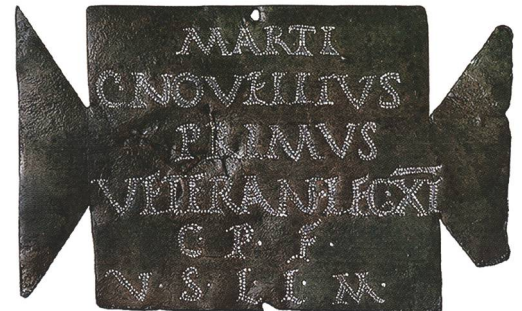 MARTI
C NOVELLIVS
PRIMVS
VETERAN LEG XI
C P · F ·
V · S · L · L · M ·